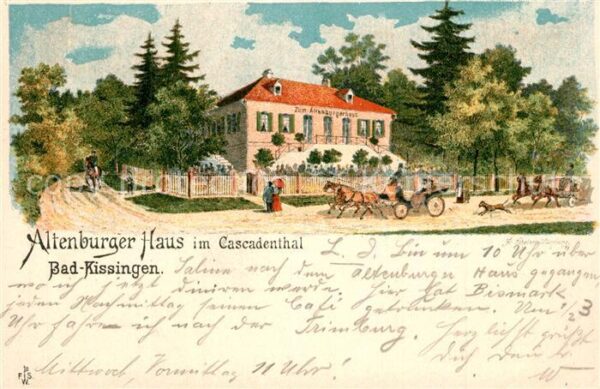 Zum Altenburgerhaus
Altenburger Haus im Cascadenthal
Bad-Kissingen.
L. J. Bin um 10 Uhr über
Saline nach dem Altenburger Haus gegangen,
wo ich jetzt diniren werde. Hier hat Bismark
jeden Nachmittag seinen Café getrunken. Um ½3
Uhr fahre ich nach der Trimburg. Herzlichst grüßt
Dich Dein tr.
Mittwoch, Vormittag 11 Uhr! W